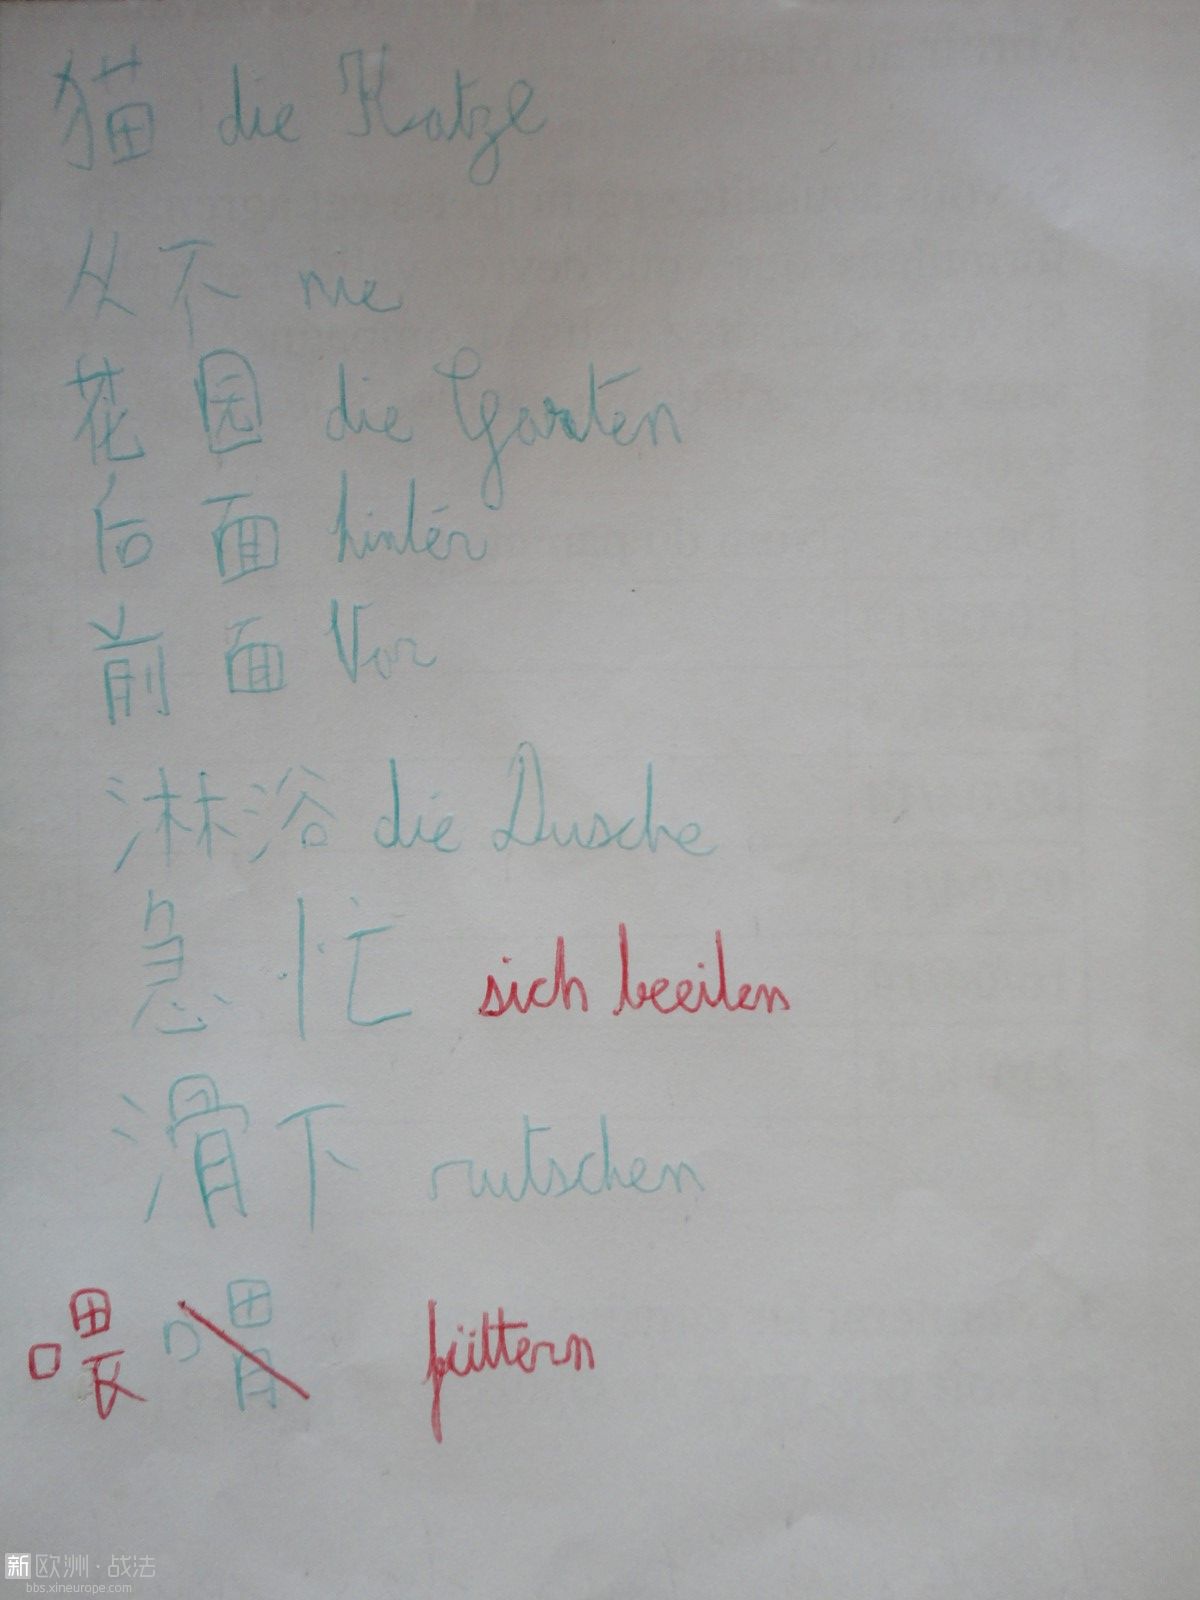 猫 die Katze
从不 nie
花园 die Garten
后面 hinter
前面 Vor
淋浴 die Dusche
急忙 sich beeilen
滑下 rutschen
喂 喟 füttern
新欧洲·战法
bbs.xineurope.com